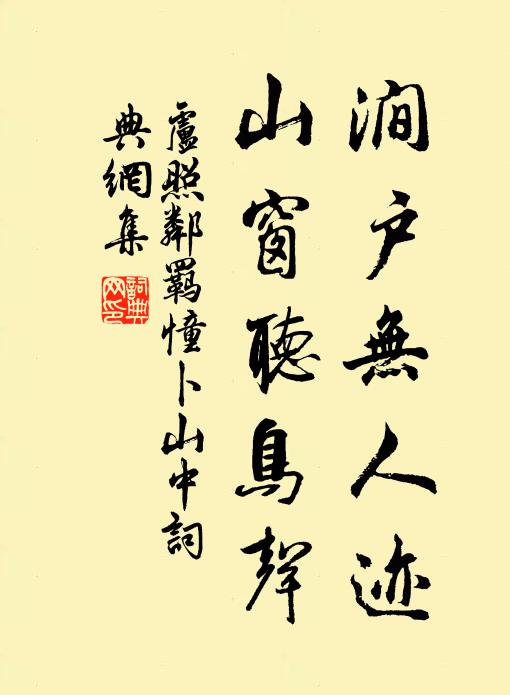 澗户無人迹
山窗聽鳥聲
盧照鄰羈憧卜山中詞
典網集
詞典
网印